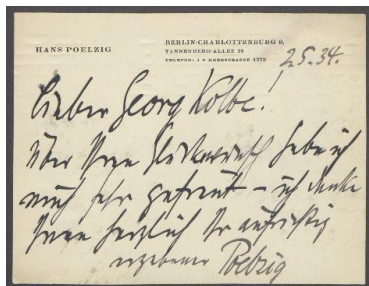 HANS POELZIG
BERLIN-CHARLOTTENBURG 9,
TANNENBERG-ALLEE 28
TELEFON: J 9 HEERSTRASSE 1272
2.5.34.
Lieber Georg Kolbe!
Über Ihren Glückwunsch habe ich
mich sehr gefreut – ich danke
Ihnen herzlich Ihr aufrichtig
ergebener Poelzig